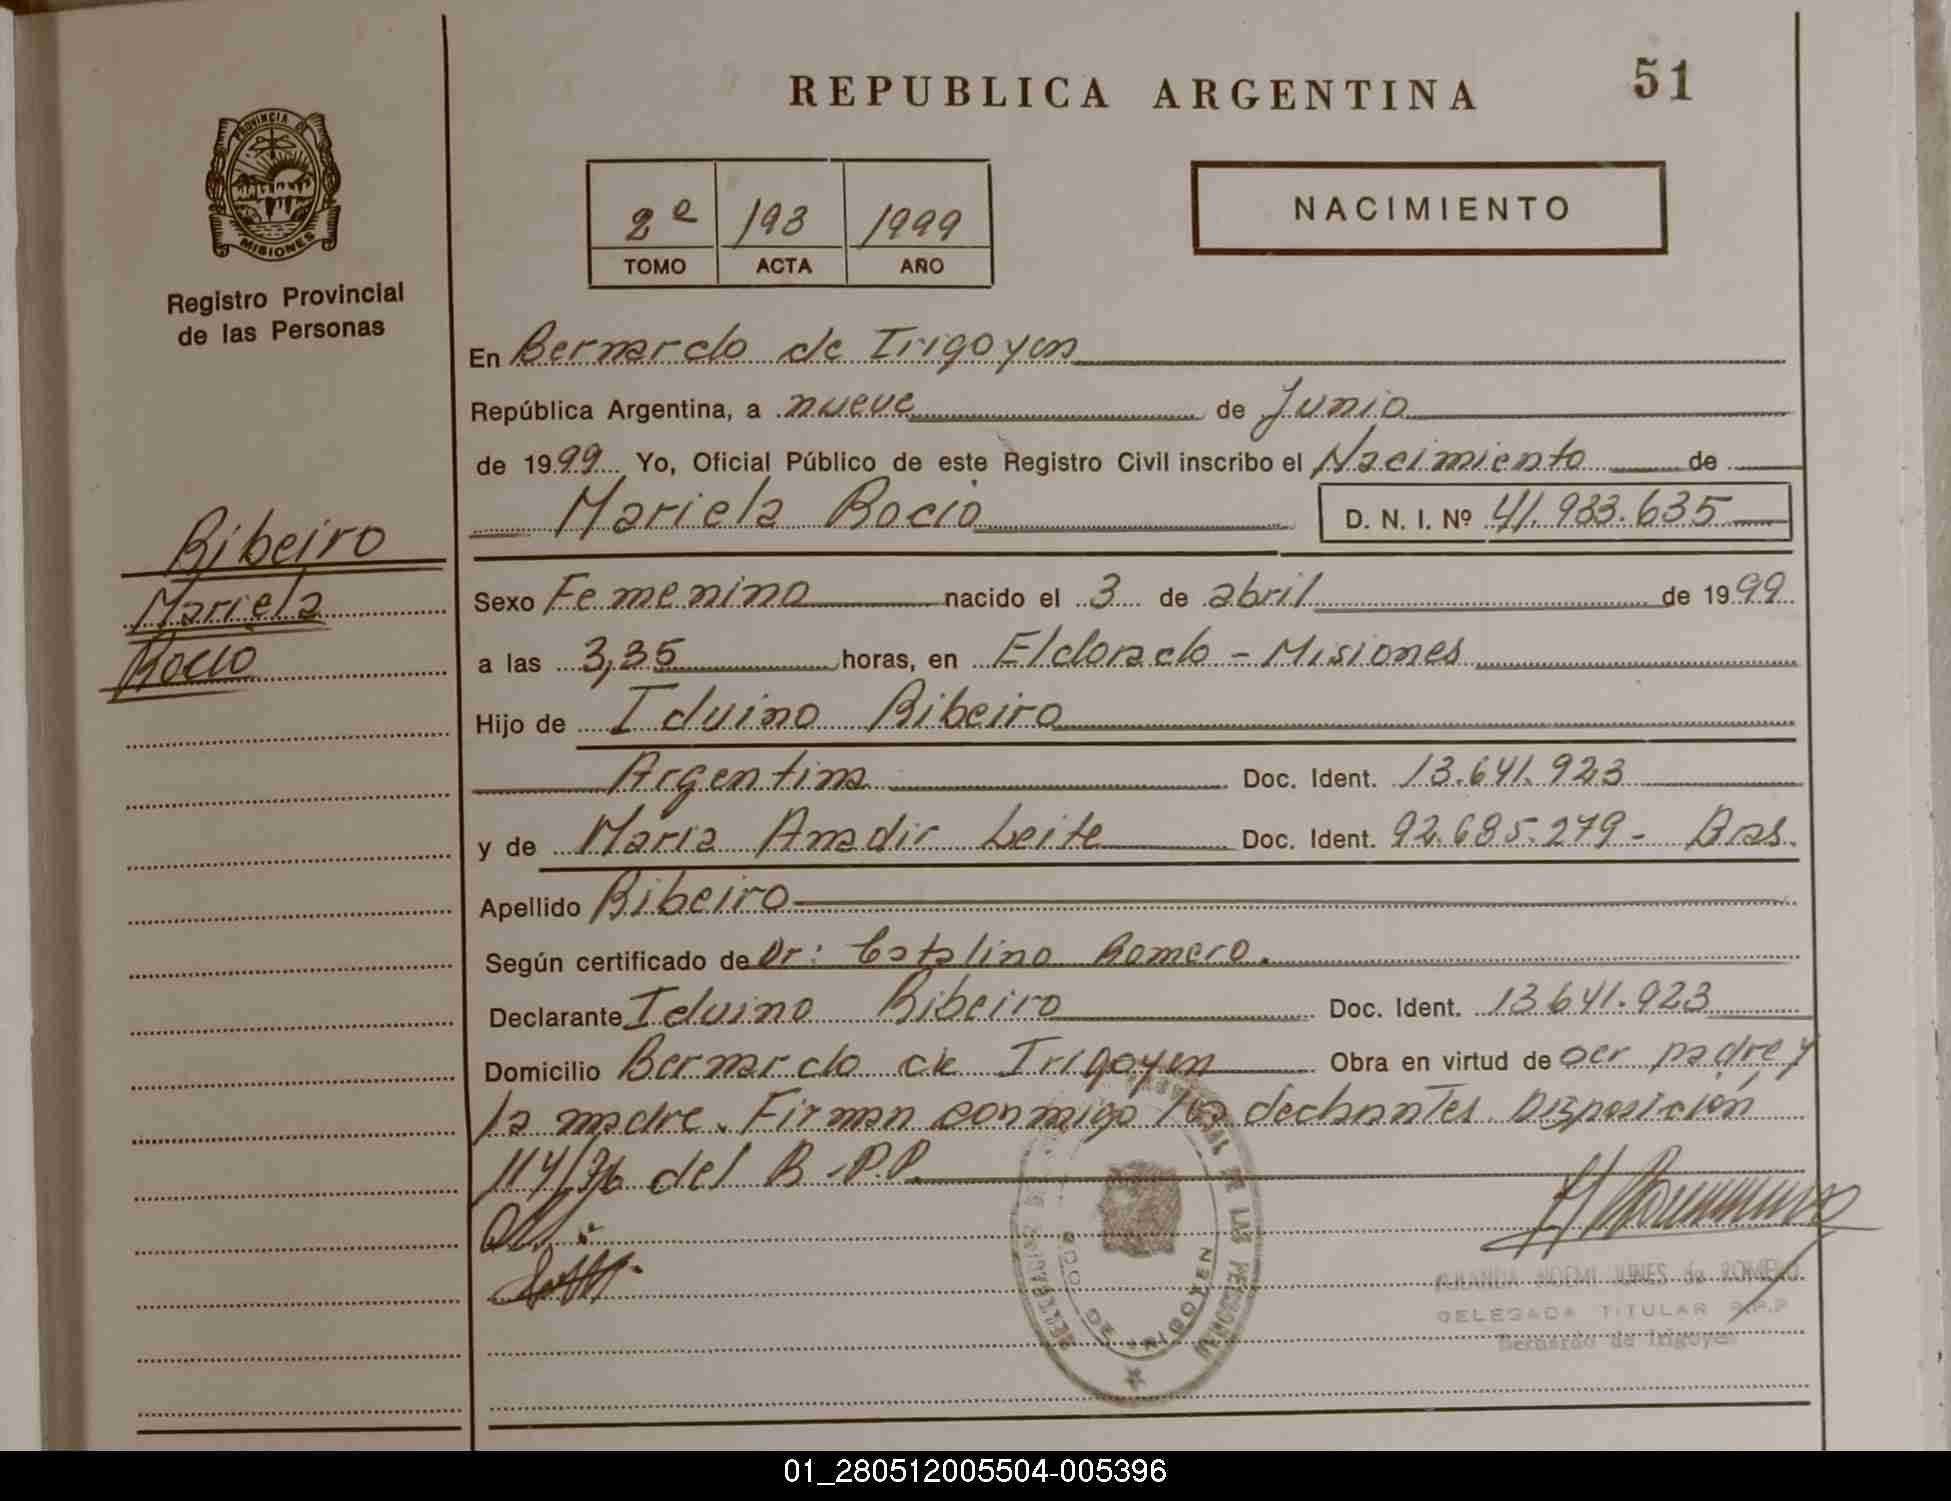 REPUBLICA ARGENTINA
51
PROVINCIA DE
MISIONES
Registro Provincial
de las Personas
2º 193 1999
TOMO ACTA AÑO
NACIMIENTO
Ribeiro
Mariela
Rocío
En Bernardo de Irigoyen
República Argentina, a nueve de Junio
de 1999 Yo, Oficial Público de este Registro Civil inscribo el Nacimiento de
Mariela Rocío D. N. I. Nº 41.933.635
Sexo Femenino nacido el 3 de abril de 1999
a las 3,35 horas, en Eldorado - Misiones
Hijo de Iduino Ribeiro
Argentina Doc. Ident. 13.641.923
y de Maria Anadir Leite Doc. Ident. 92.685.279- Bras.
Apellido Ribeiro
Según certificado de Dr: Catalino Romero.
Declarante Iduino Ribeiro Doc. Ident. 13641.923
Domicilio Bernardo de Irigoyen Obra en virtud de ser padre y
la madre. Firman conmigo los declarantes Disposición
114/96 del R.P.P.
DE LAS PERSONAS
IRIGOYEN
NOEMI JUNES de ROMERO
DELEGADA TITULAR R.P.P
Bernardo de Irigoyen
01_280512005504-005396